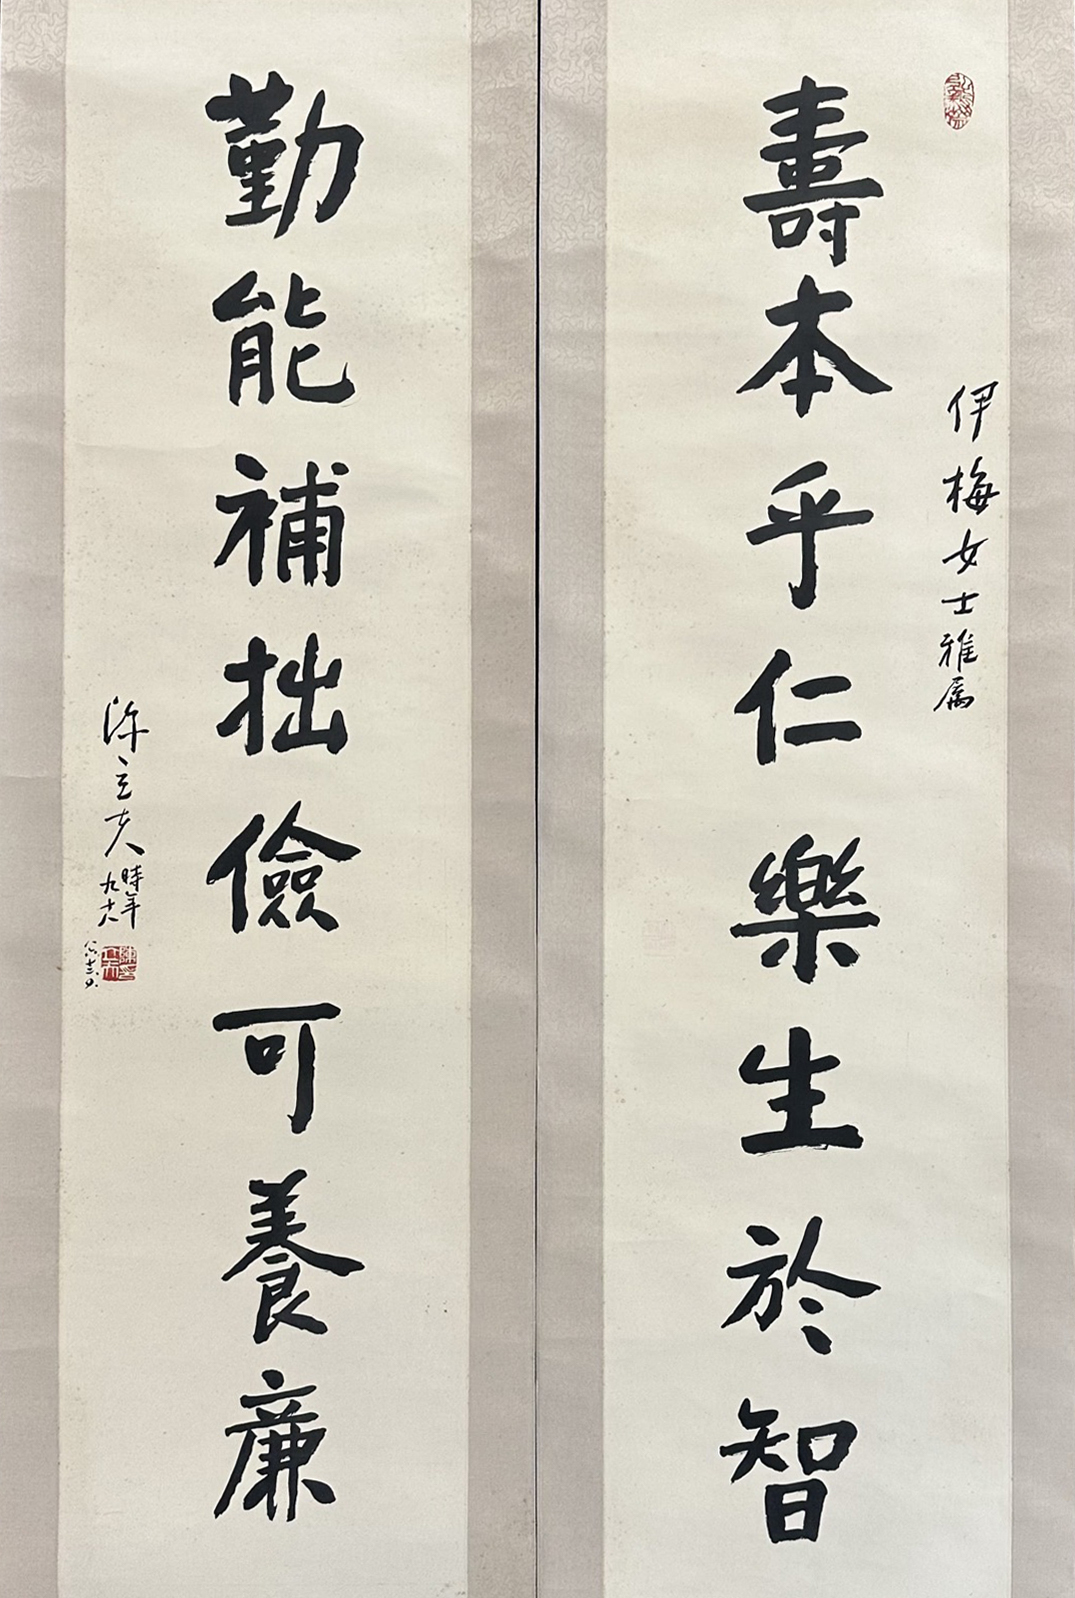 伊梅女士雅属
壽本乎仁樂生於智
勤能補拙儉可養廉
陳立夫
時年
九十六